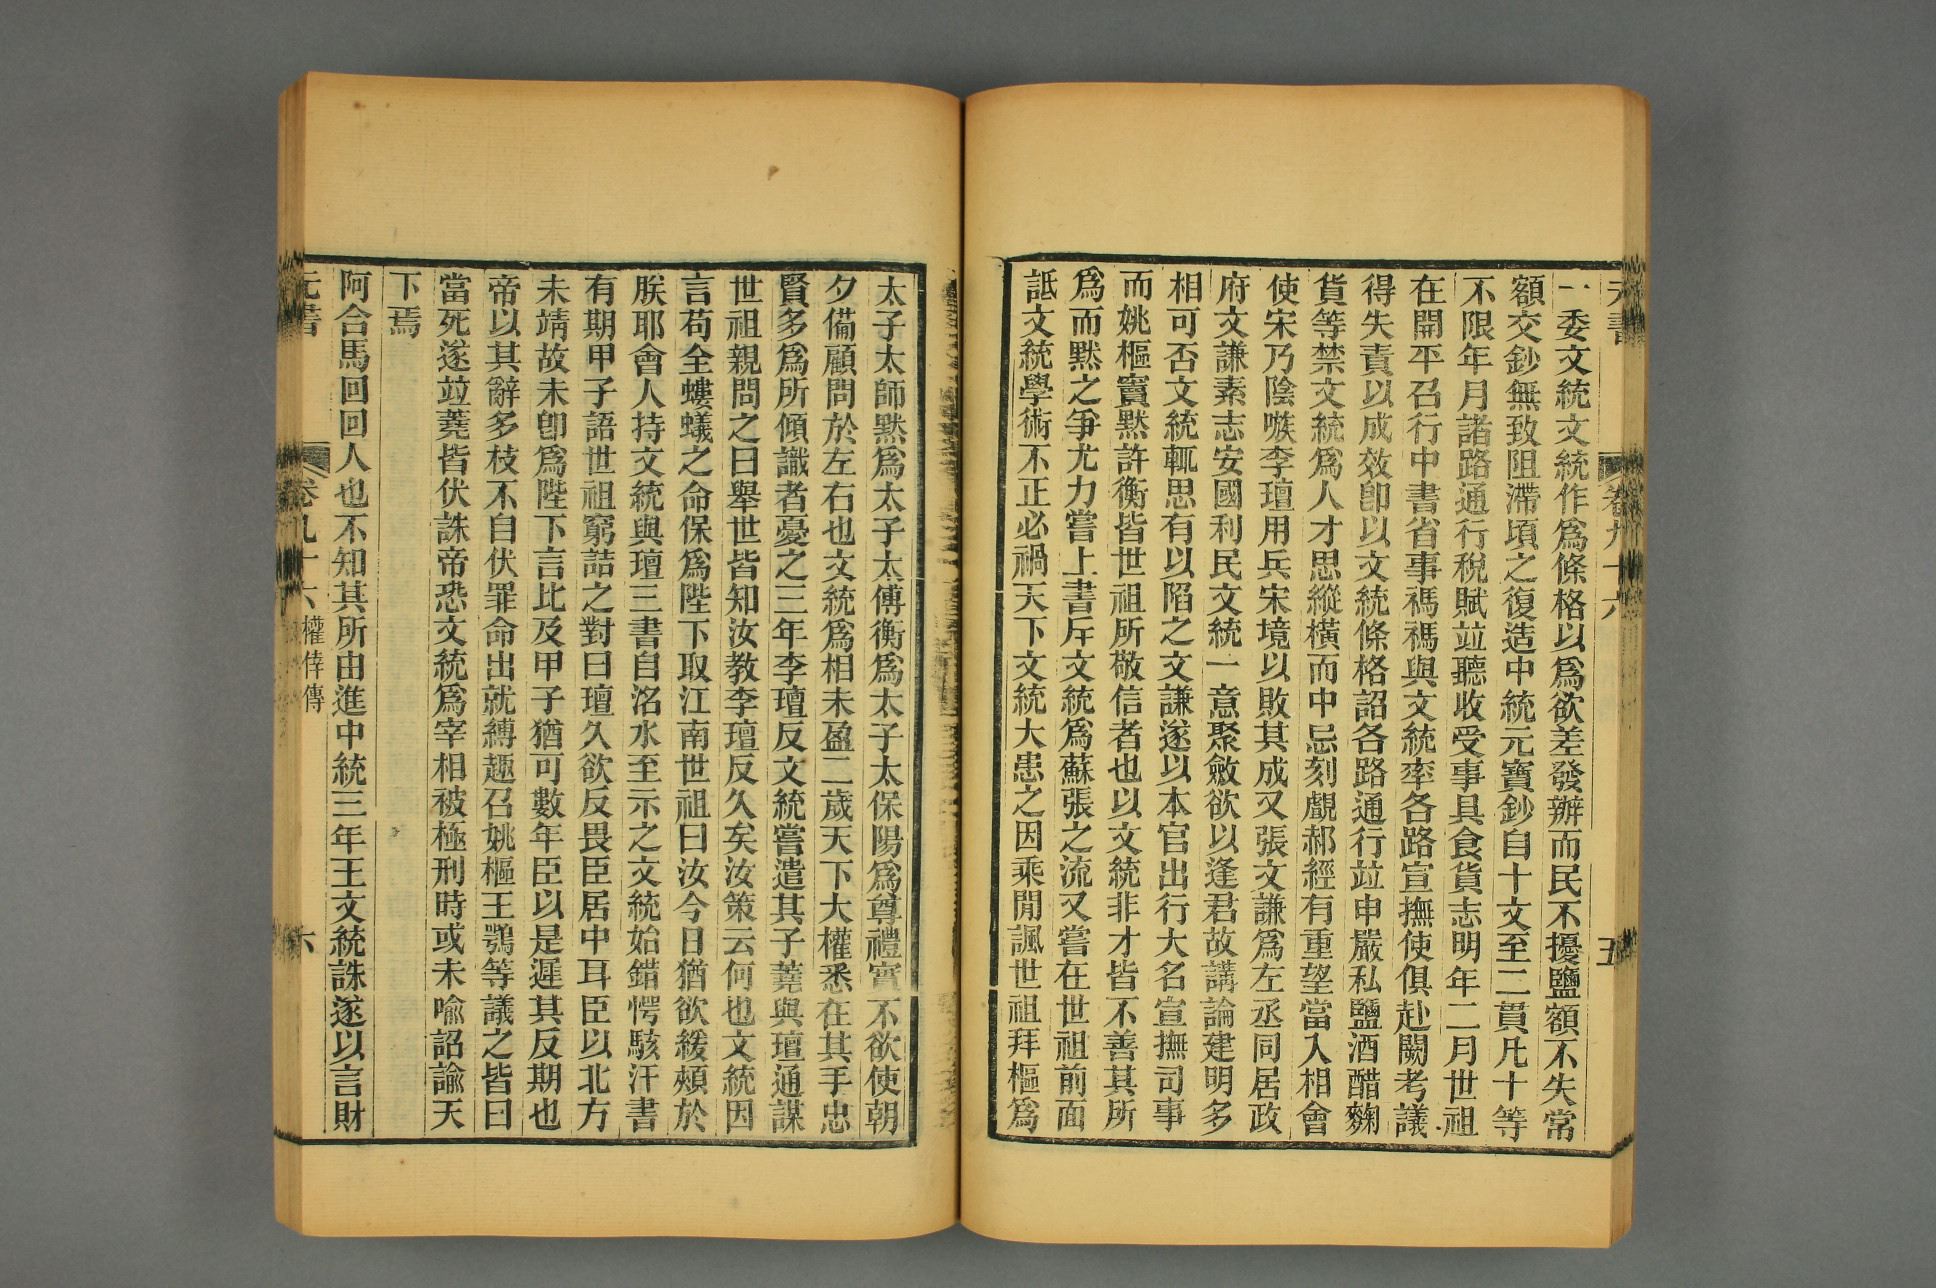 元書 卷九十六 五
一委文統文統作爲條格以爲欲差發辦而民不擾鹽額不失常
額交鈔無致阻滯頃之復造中統元寶鈔自十文至二貫凡十等
不限年月諸路通行稅賦竝聽收受事具食貨志明年二月世祖
在開平召行中書省事禡禡與文統率各路宣撫使俱赴闕考議
得失責以成效卽以文統條格詔各路通行竝申嚴私鹽酒醋麴
貨等禁文統爲人才思縱橫而中忌刻覰郝經有重望當入相會
使宋乃陰嗾李璮用兵宋境以敗其成又張文謙爲左丞同居政
府文謙素志安國利民文統一意聚斂欲以逢君故講論建明多
相可否文統輒思有以陷之文謙遂以本官出行大名宣撫司事
而姚樞竇默許衡皆世祖所敬信者也以文統非才皆不善其所
爲而默之爭尤力嘗上書斥文統爲蘇張之流又嘗在世祖前面
詆文統學術不正必禍天下文統大患之因乘閒諷世祖拜樞爲
太子太師默爲太子太傅衡爲太子太保陽爲尊禮實不欲使朝
夕備顧問於左右也文統爲相未盈二歲天下大權悉在其手忠
賢多爲所傾識者憂之三年李璮反文統嘗遣其子蕘與璮通謀
世祖親問之曰舉世皆知汝教李璮反久矣汝策云何也文統因
言苟全螻蟻之命保爲陛下取江南世祖曰汝今日猶欲緩頰於
朕耶會人持文統與璮三書自洺水至示之文統始錯愕駭汗書
有期甲子語世祖窮詰之對曰璮久欲反畏臣居中耳臣以北方
未靖故未卽爲陛下言比及甲子猶可數年臣以是遲其反期也
帝以其辭多枝不自伏罪命出就縛趣召姚樞王鶚等議之皆曰
當死遂竝蕘皆伏誅帝恐文統爲宰相被極刑時或未喩詔諭天
下焉
阿合馬回回人也不知其所由進中統三年王文統誅遂以言財
元書 卷九十六 權倖傳 六